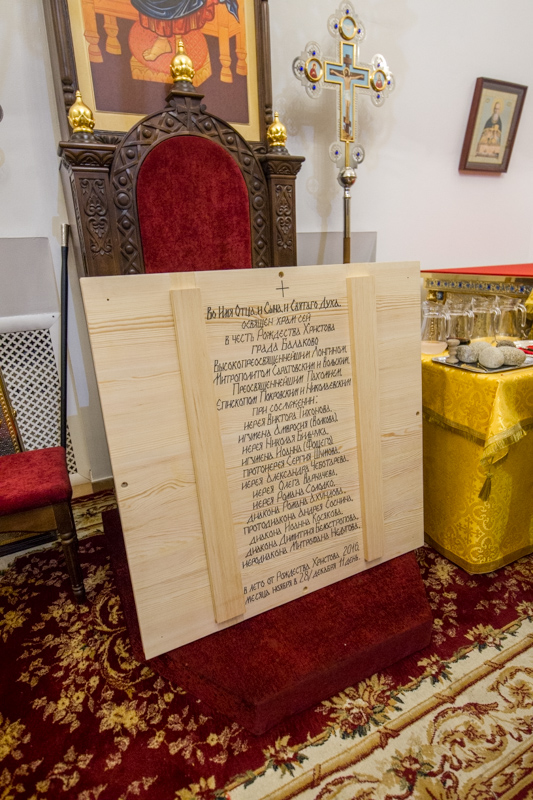 Во Имя Отца и Сына и Святаго Духа.
освящен храм сей
в честь Рождества Христова
града Балаково
Высокопреосвященнейшим Лонгином,
Митрополитом Саратовским и Вольским,
Преосвященнейшим Пахомием,
Епископом Покровским и Николаевским
при сослужении:
иерея Виктора
игумена Амвросия (Волкова)
иерея Николая
игумена Иоанна
протоиерея Сергия Шумова
иерея Александра Чеботарева
иерея Олега Варначева
иерея Романа Солодко
диакона Романа Ахундова
протодиакона Андрея Соснина
диакона Иоанна Косякова
диакона Димитрия Белостропова
иеродиакона Митрофана
в лето от Рождества Христова, 2019,
месяца ноября в 28/ декабря 11 день.